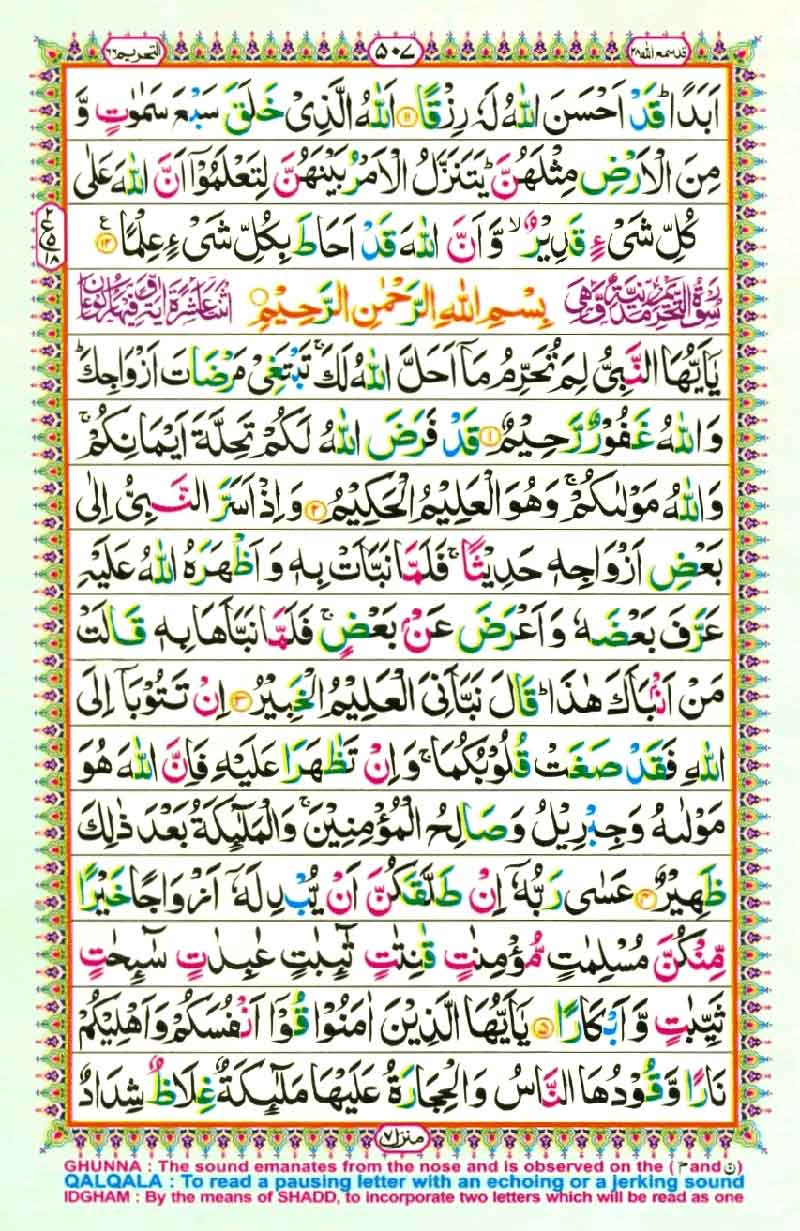 قد سمع اللہ ۲۸
۵۰۷
التحریم ۶۶
اَبَدًا ؕ قَدۡ اَحۡسَنَ اللّٰهُ لَهٗ رِزۡقًا ﴿۱۱﴾ اَللّٰهُ الَّذِىۡ خَلَقَ سَبۡعَ سَمٰوٰتٍ وَّ
مِنَ الۡاَرۡضِ مِثۡلَهُنَّ ؕ يَتَنَزَّلُ الۡاَمۡرُ بَيۡنَهُنَّ لِتَعۡلَمُوۡۤا اَنَّ اللّٰهَ عَلٰى
كُلِّ شَىۡءٍ قَدِيۡرٌ ۙ وَّ اَنَّ اللّٰهَ قَدۡ اَحَاطَ بِكُلِّ شَىۡءٍ عِلۡمًا ﴿۱۲﴾
ع
۲
۵
۱۸
سُوۡرَةُ التَّحۡرِيۡمِ مَدَنِيَّةٌ وَّهِىَ
بِسۡمِ اللّٰهِ الرَّحۡمٰنِ الرَّحِيۡمِ
اثۡنَتَا عَشۡرَةَ اٰيَةً وَّفِيۡهَا رُكُوۡعَانِ
يٰۤاَيُّهَا النَّبِىُّ لِمَ تُحَرِّمُ مَاۤ اَحَلَّ اللّٰهُ لَكَ ۚ تَبۡتَغِىۡ مَرۡضَاتَ اَزۡوَاجِكَ ؕ
وَاللّٰهُ غَفُوۡرٌ رَّحِيۡمٌ ﴿۱﴾ قَدۡ فَرَضَ اللّٰهُ لَكُمۡ تَحِلَّةَ اَيۡمَانِكُمۡ ۚ
وَاللّٰهُ مَوۡلٰٮكُمۡ ۚ وَهُوَ الۡعَلِيۡمُ الۡحَكِيۡمُ ﴿۲﴾ وَاِذۡ اَسَرَّ النَّبِىُّ اِلٰى
بَعۡضِ اَزۡوَاجِهٖ حَدِيۡثًا ۚ فَلَمَّا نَبَّاَتۡ بِهٖ وَاَظۡهَرَهُ اللّٰهُ عَلَيۡهِ
عَرَّفَ بَعۡضَهٗ وَاَعۡرَضَ عَنۡۢ بَعۡضٍ ۚ فَلَمَّا نَبَّاَهَا بِهٖ قَالَتۡ
مَنۡ اَنۡۢبَاَكَ هٰذَا ؕ قَالَ نَبَّاَنِىَ الۡعَلِيۡمُ الۡخَبِيۡرُ ﴿۳﴾ اِنۡ تَتُوۡبَاۤ اِلَى
اللّٰهِ فَقَدۡ صَغَتۡ قُلُوۡبُكُمَا ۚ وَاِنۡ تَظٰهَرَا عَلَيۡهِ فَاِنَّ اللّٰهَ هُوَ
مَوۡلٰٮهُ وَجِبۡرِيۡلُ وَصَالِحُ الۡمُؤۡمِنِيۡنَ ۚ وَالۡمَلٰٓٮِٕكَةُ بَعۡدَ ذٰلِكَ
ظَهِيۡرٌ ﴿۴﴾ عَسٰى رَبُّهٗۤ اِنۡ طَلَّقَكُنَّ اَنۡ يُّبۡدِلَهٗۤ اَزۡوَاجًا خَيۡرًا
مِّنۡكُنَّ مُسۡلِمٰتٍ مُّؤۡمِنٰتٍ قٰنِتٰتٍ تٰٓٮِٕبٰتٍ عٰبِدٰتٍ سٰٓٮِٕحٰتٍ
ثَيِّبٰتٍ وَّاَبۡكَارًا ﴿۵﴾ يٰۤاَيُّهَا الَّذِيۡنَ اٰمَنُوۡا قُوۡۤا اَنۡفُسَكُمۡ وَاَهۡلِيۡكُمۡ
نَارًا وَّقُوۡدُهَا النَّاسُ وَالۡحِجَارَةُ عَلَيۡهَا مَلٰٓٮِٕكَةٌ غِلَاظٌ شِدَادٌ
منزل ۷
GHUNNA : The sound emanates from the nose and is observed on the (م and ن)
QALQALA : To read a pausing letter with an echoing or a jerking sound
IDGHAM : By the means of SHADD, to incorporate two letters which will be read as one